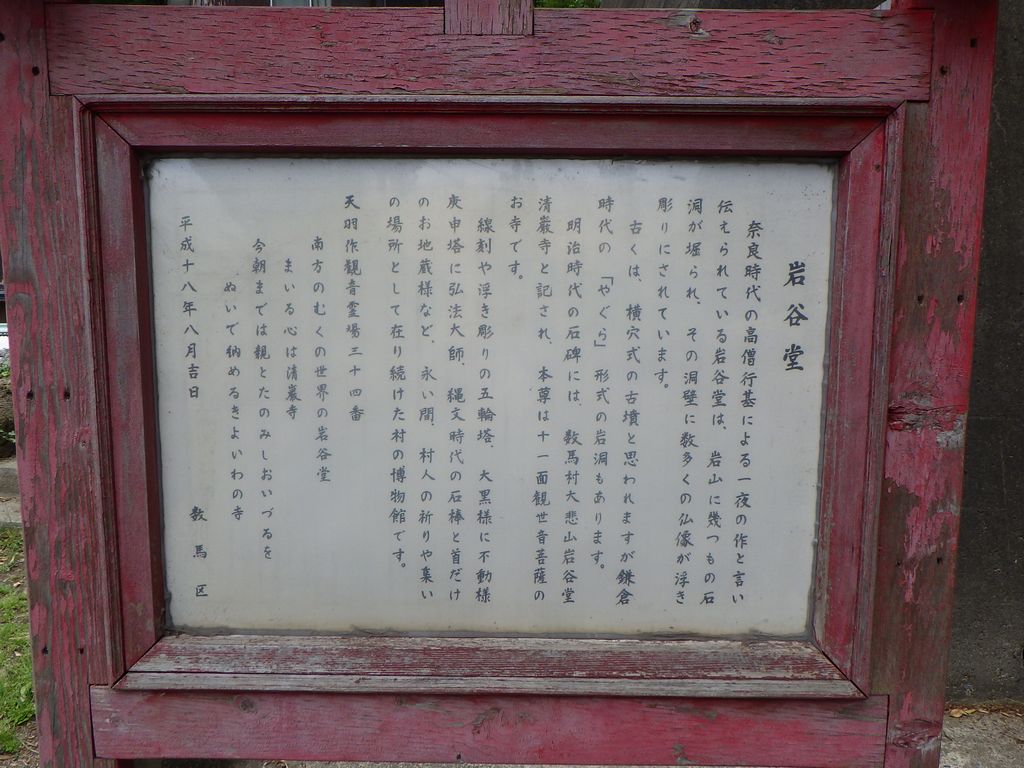 岩谷堂
奈良時代の高僧行基による一夜の作と言い
伝えられている岩谷堂は、岩山に幾つもの石
洞が堀られ、その洞壁に数多くの仏像が浮き
彫りにされています。
古くは、横穴式の古墳と思われますが鎌倉
時代の「やぐら」形式の岩洞もあります。
明治時代の石碑には、数馬村大悲山岩谷堂
清巌寺と記され、本尊は十一面観世音菩薩の
お寺です。
線刻や浮き彫りの五輪塔、大黒様に不動様
庚申塔に弘法大師、縄文時代の石棒と首だけ
のお地蔵様など、永い間、村人の祈りや集い
の場所として在り続けた村の博物館です。
天羽作観音霊場三十四番
南方のむくの世界の岩谷堂
まいる心は清巌寺
今朝までは親とたのみしおいづるを
ぬいで納めるきよいわの寺
平成十八年八月吉日
数馬区